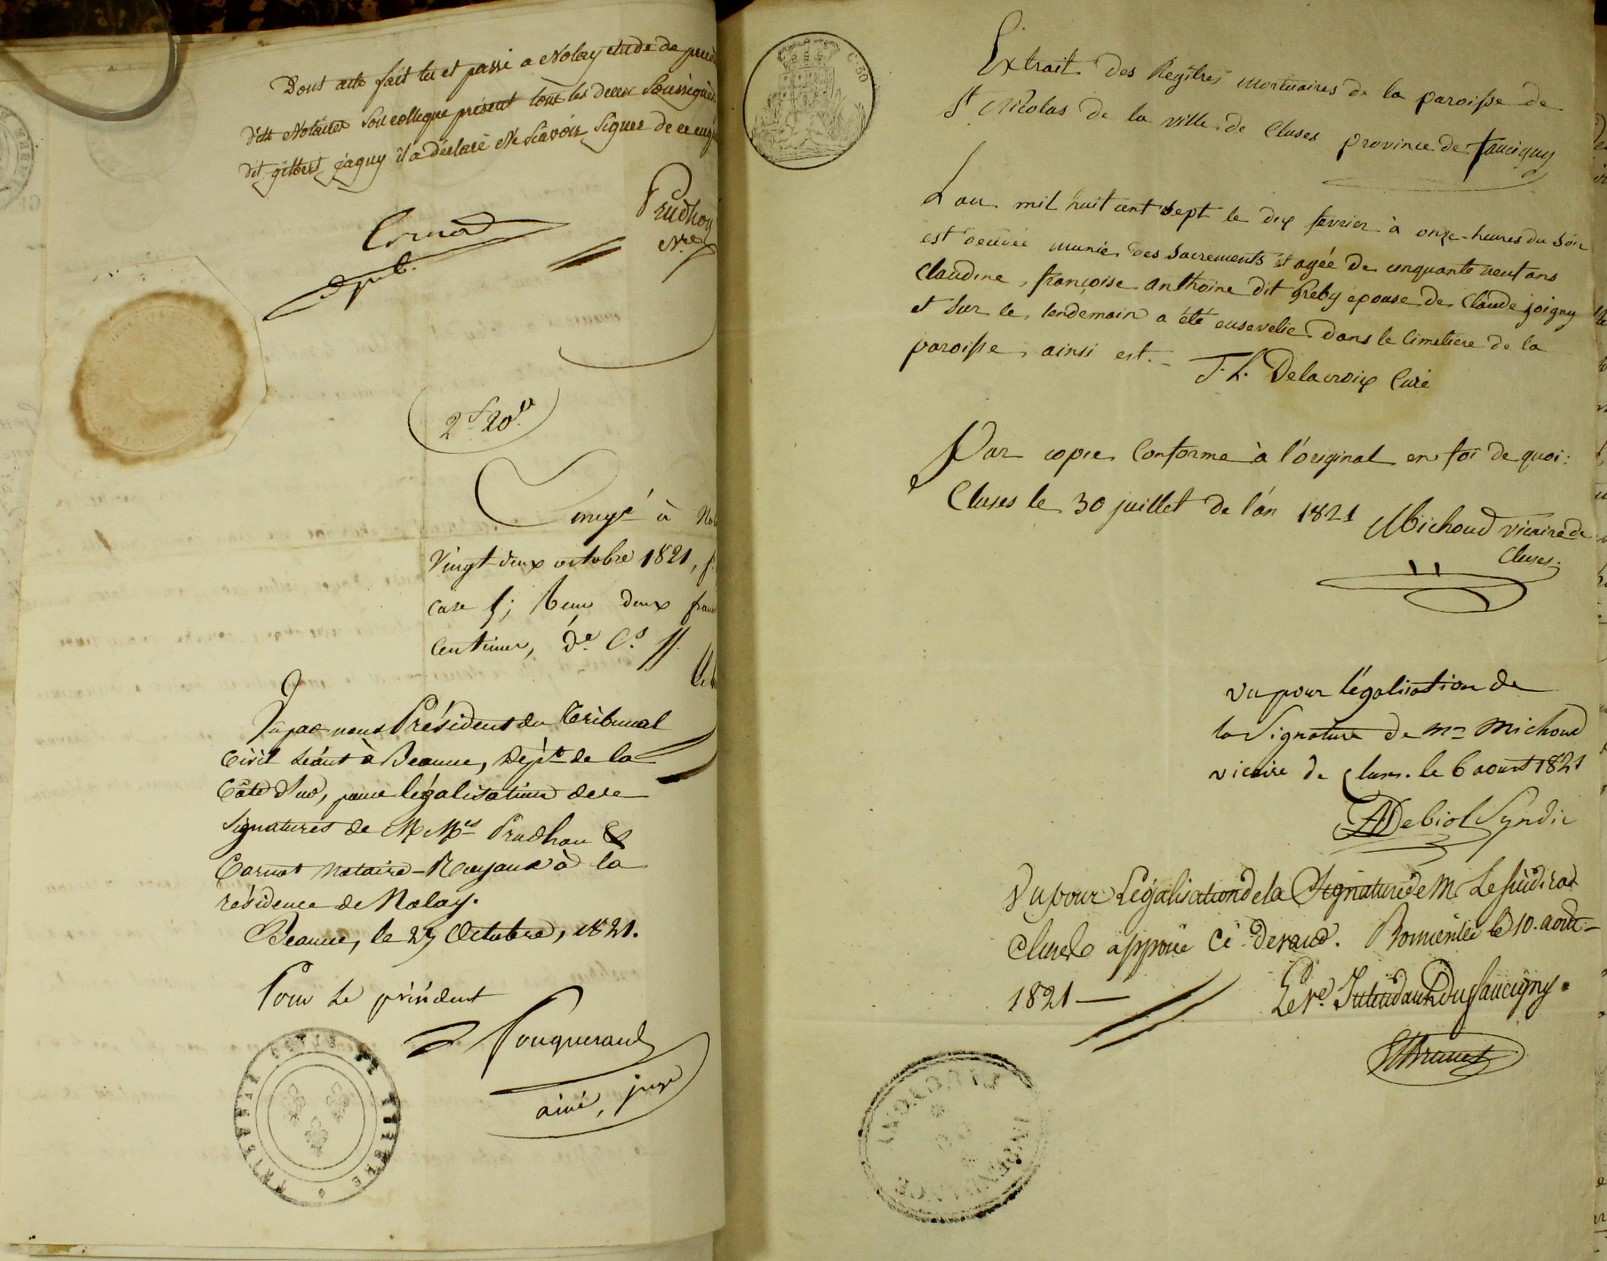 Dont acte fait lu et passé a Nolay etude de prud
dit Notaire son collegue présent tous les deux soussignés
dit gilbert Jaguy il a déclaré ne scavoir signer de ce enq
Prudhon
Nre
2f 20c
Enregé à Nol
vingt deux octobre 1821, f.
case 5; Reçu deux franc
centimes, de Cs
Vu par nous Président du Tribunal
Civil séant à Beaune, Dépt de la
Côte d'or, pour légalisation des
signatures de MMes Prudhon &
Carnot notaires Royaux à la
résidence de Nolay.
Beaune, le 27 Octobre, 1821.
Pour le président
Fouquerand
ainé, juge
C. 50
Extrait des Regîtres mortuaires de la paroisse de
St Nicolas de la ville de Cluses province de faucigny
L'an mil huit cent sept le dix fevrier à onze heures du soir
est decédée munie des sacrements et agée de cinquante neuf ans
Claudine françoise anthoine dit Greby epouse de Claude joigny
et sur le lendemain a été ensevelie dans le cimetiere de la
paroisse, ainsi est.- J. L. Delacroix Curé
Par copie conforme à l'original en foi de quoi:
Cluses le 30 juillet de l'an 1821 Michoud vicaire de
Cluses.
Vu pour légalisation de
la signature de mr Michoud
vicaire de Cluses. le 6 aoust 1821
Debiol Syndic
Vu pour Légalisation de la Signature de M. Le sindic de
Cluses apposée ci devant. Bonneville le 10. août
1821 — Le Ve. Intendant du faucigny.